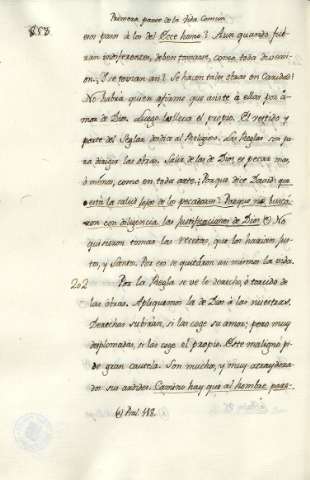 Primera parte de la Vida Comun
858
eros paran à los del Ecce homo? Aun quando fue-
ran indiferentes, deben tomarse, como toda diversi-
on. Se toman asi? Se hacen tales obras en Caridad?
No habrà quien afirme que asiste à ellas por a-
mor de Dios. Luego las lleva el propio. El vestido y
porte del Seglar desdice al Religioso. Las Reglas son pa-
ra dirigir las obras. Salir de las de Dios, es pecar mas,
ò menos, como en toda arte. ¿Porque dice David, que
està la salud lejos de los pecadores? Porque no busca-
ron con diligencia las justificaciones de Dios. (r) No
quisieron tomar las recetas, que los harian jus-
tos, y Santos. Por eso se quedaron asi mismos la vida.
202 Por la Regla se ve lo derecho, ò torcido de
las obras. Apliquemos la de Dios à las nuestras.
Derechas subiràn, si las coge su amor; pero muy
desplomadas, si las coge el propio. Este maligno pi-
de gran cautela. Son muchos, y muy arrayzera-
dos sus ardides. Camino hay que al hombre pare-
(r) Psal. 118.